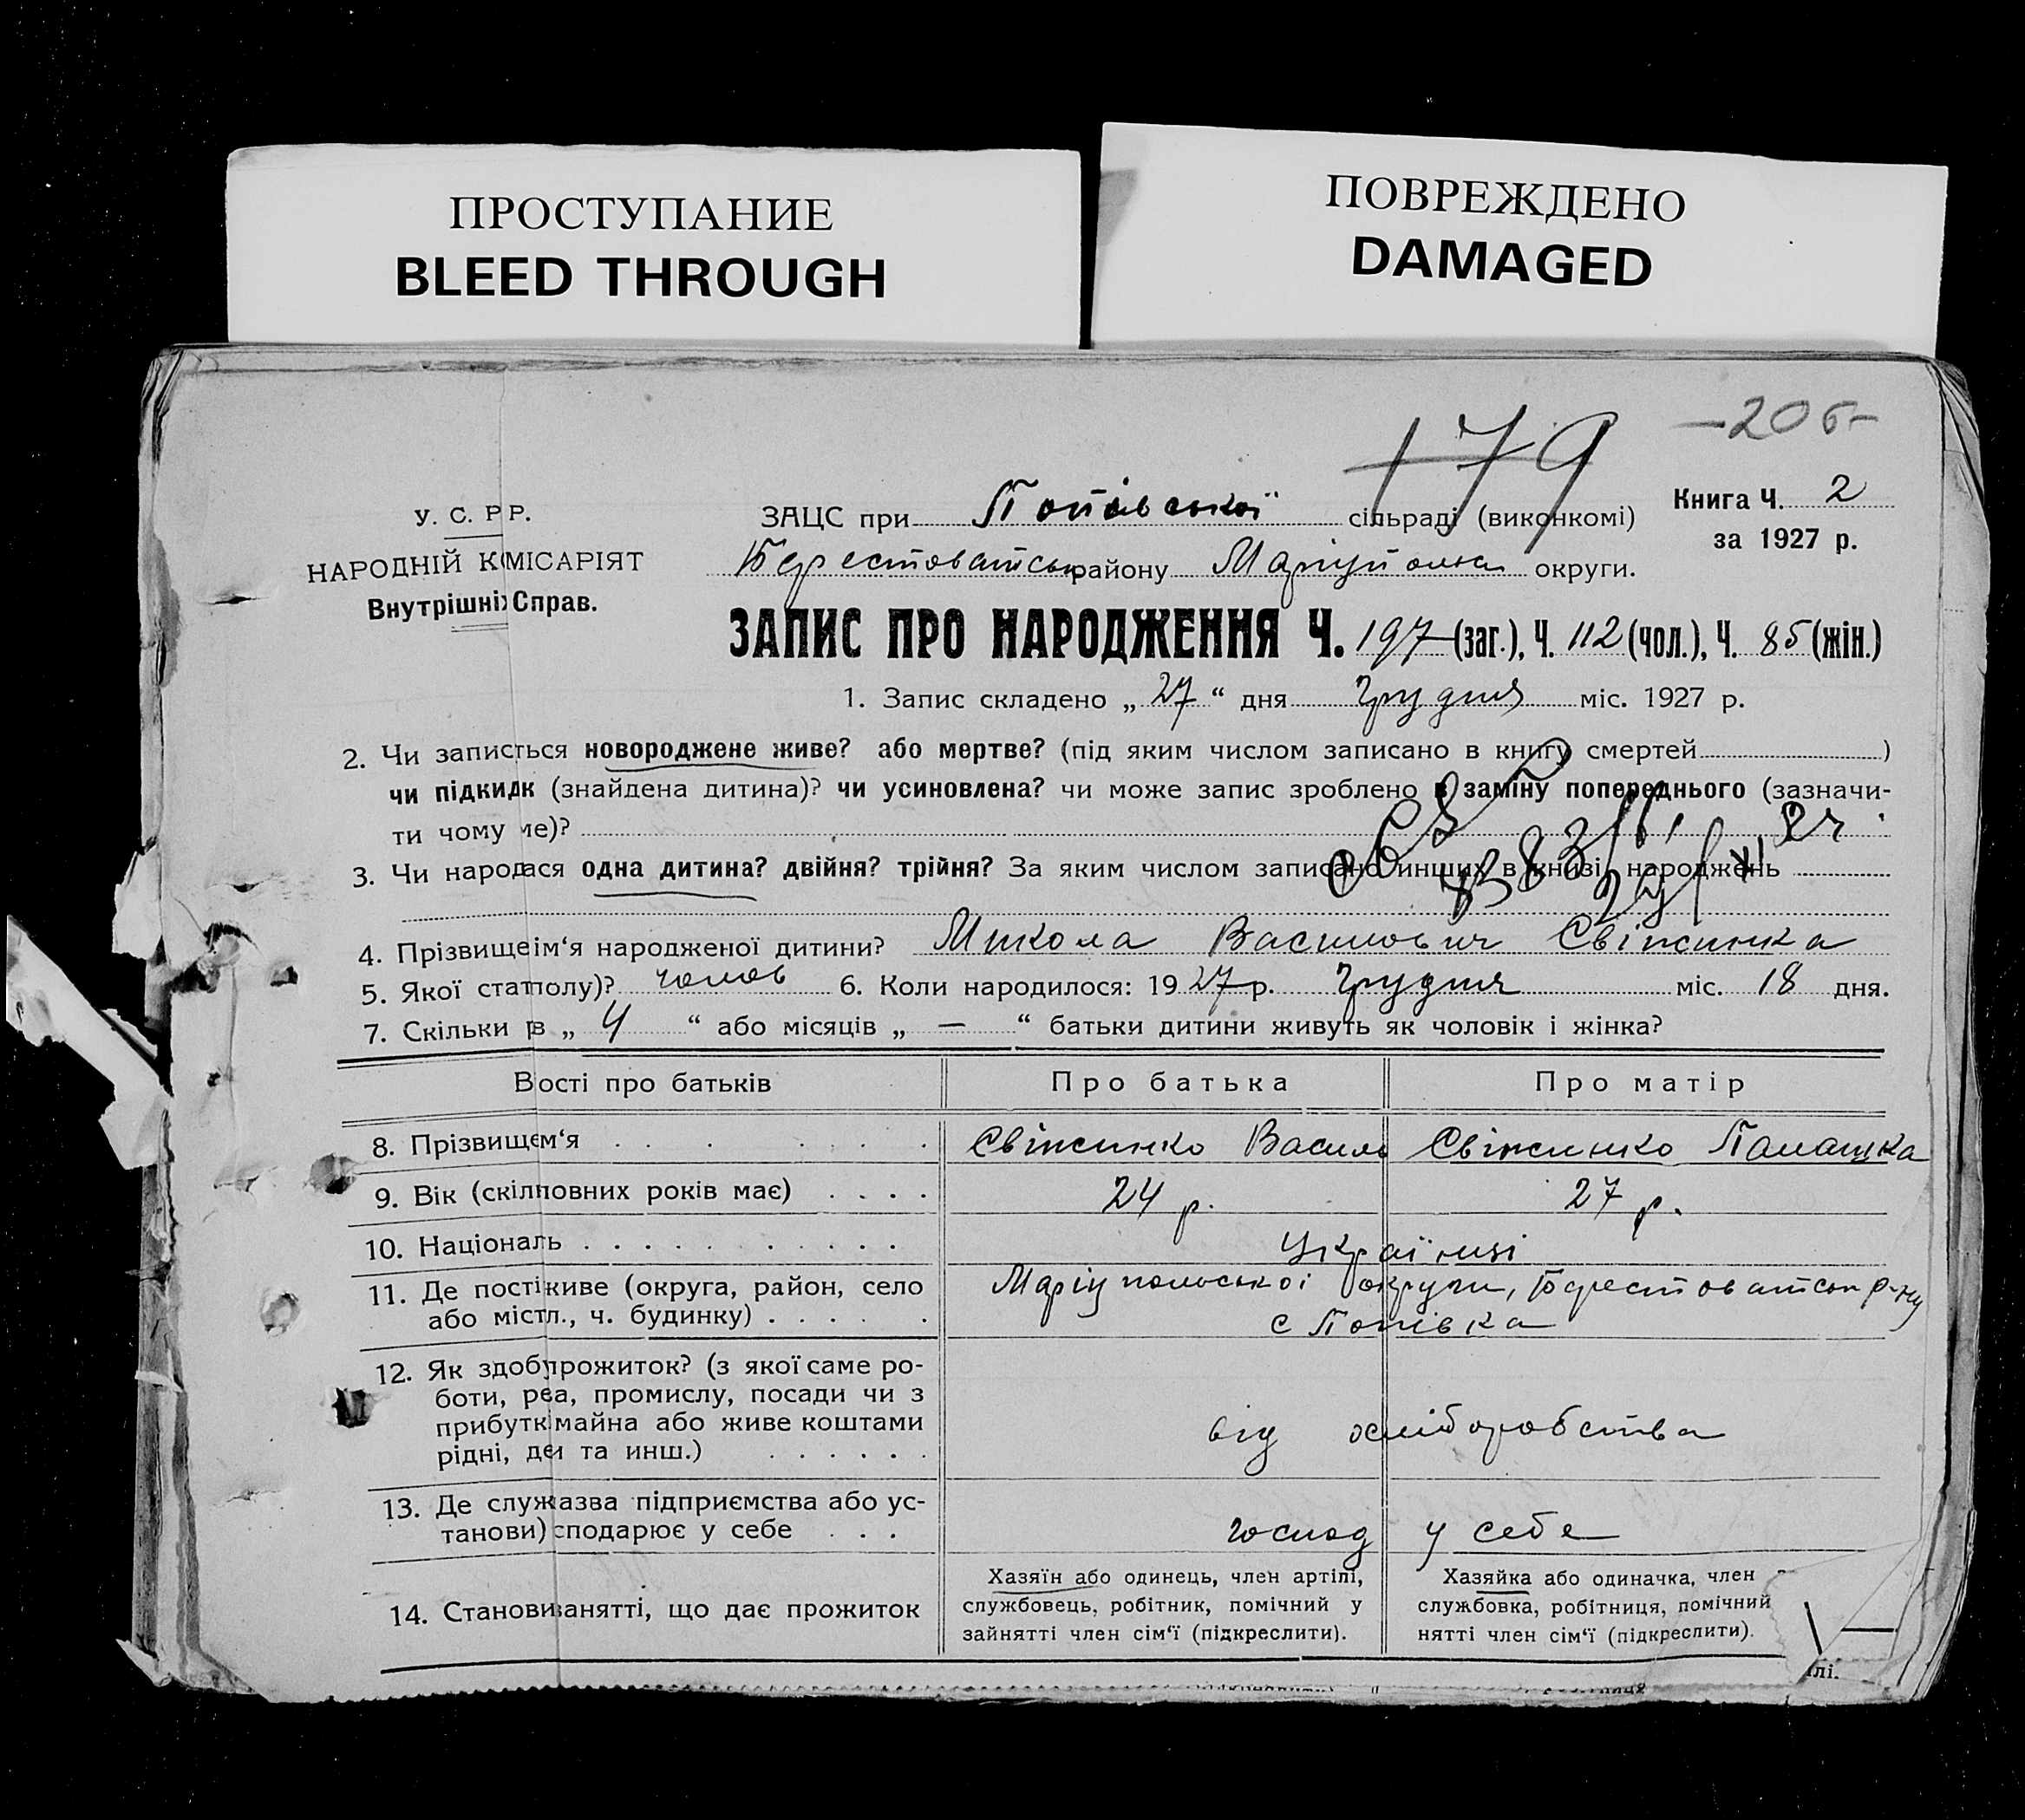 ПРОСТУПАНИЕ
BLEED THROUGH
ПОВРЕЖДЕНО
DAMAGED
-206-
179
У. С. Р Р.
НАРОДНІЙ КМІСАРІЯТ
Внутрішні Справ.
ЗАЦС при Попівської сільраді (виконкомі)
Берестоватськ району Маріупольск округи.
Книга Ч. 2
за 1927 р.
ЗАПИС ПРО НАРОДЖЕННЯ Ч. 197 (заг.), Ч. 112 (чол.), Ч. 85 (жін.)
1. Запис складено „ 27 “ дня грудня міс. 1927 р.
2. Чи записться новороджене живе? або мертве? (під яким числом записано в книгу смертей )
чи підкидк (знайдена дитина)? чи усиновлена? чи може запис зроблено в заміну попереднього (зазначи-
ти чому ме)?
3. Чи народася одна дитина? двійня? трійня? За яким числом записано инших в книзі народжень
4. Прізвище ім‘я народженої дитини? Микола Васильович Свіженка
5. Якої стат полу)? чолов 6. Коли народилося: 1927 р. грудня міс. 18 дня.
7. Скільки рв „ 4 “ або місяців „ — “ батьки дитини живуть як чоловік і жінка?
Вості про батьків
Про батька
Про матір
8. Прізвищем‘я . . . . . . . Свіженко Василь Свіженко Палашка
9. Вік (скілповних років має) . . . . 24 р. 27 р.
10. Національ . . . . . . . . . . . Українці
11. Де постіживе (округа, район, село Маріупольської округи, Берестоватськ р-ну
або містл., ч. будинку) . . . . . с Попівка
12. Як здобпрожиток? (з якої саме ро-
боти, реа, промислу, посади чи з
прибуткмайна або живе коштами від хліборобства
рідні, деи та инш.) . . . . . .
13. Де служазва підприємства або ус-
танови) сподарює у себе . . . господ у себе
14. Становизанятті, що дає прожиток
Хазяїн або одинець, член артілі,
службовець, робітник, помічний у
зайнятті член сім‘ї (підкреслити).
Хазяйка або одиначка, член
службовка, робітниця, помічний
нятті член сім‘ї (підкреслити).
ілі.